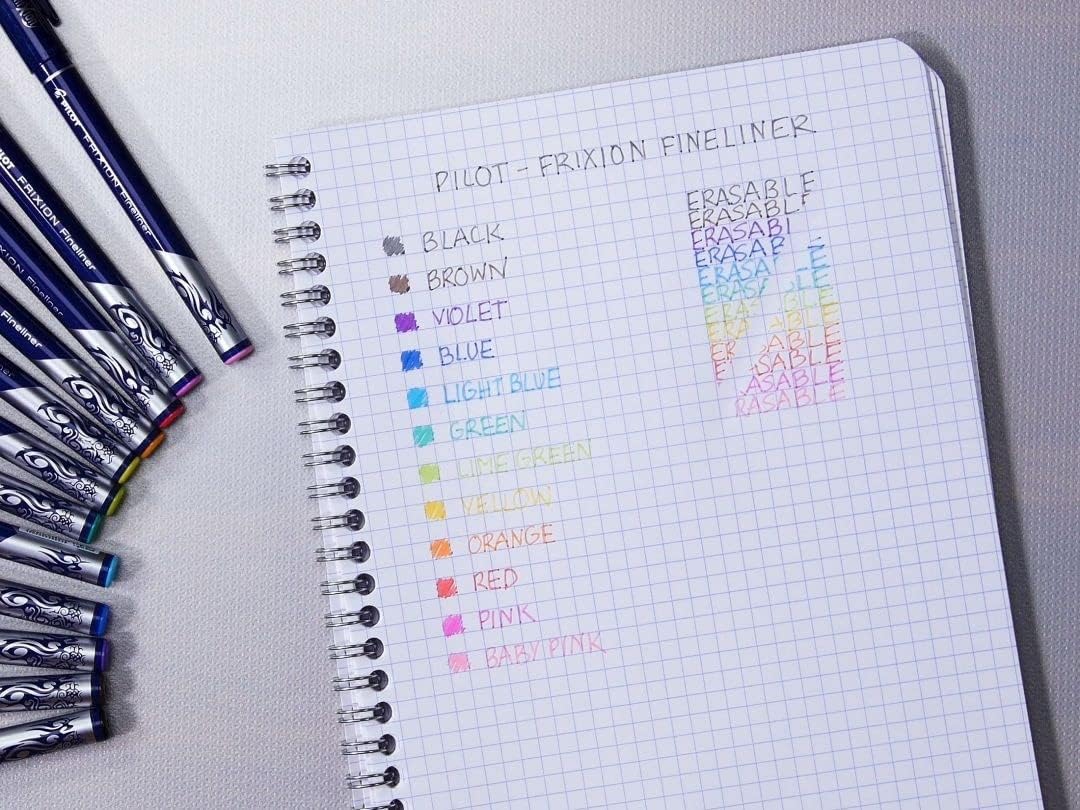 PILOT FRIXION Fineliner
PILOT FRIXION Fineliner
FRIXION Fineliner
Fineliner
PILOT - FRIXION FINELINER
BLACK
BROWN
VIOLET
BLUE
LIGHT BLUE
GREEN
LIME GREEN
YELLOW
ORANGE
RED
PINK
BABY PINK
ERASABLE
ERASABLE
ERASABL
ERASAB
ERASA LE
ERASA BLE
ERA ABLE
ERA ABLE
ER ABLE
E SABLE
ASABLE
RASABLE